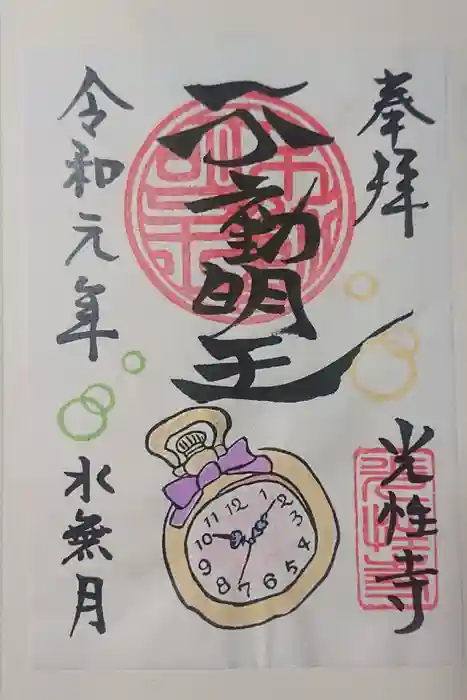 奉拝
不動明王
光性寺
令和元年
水無月
12
1
2
3
4
5
6
7
8
9
10
11